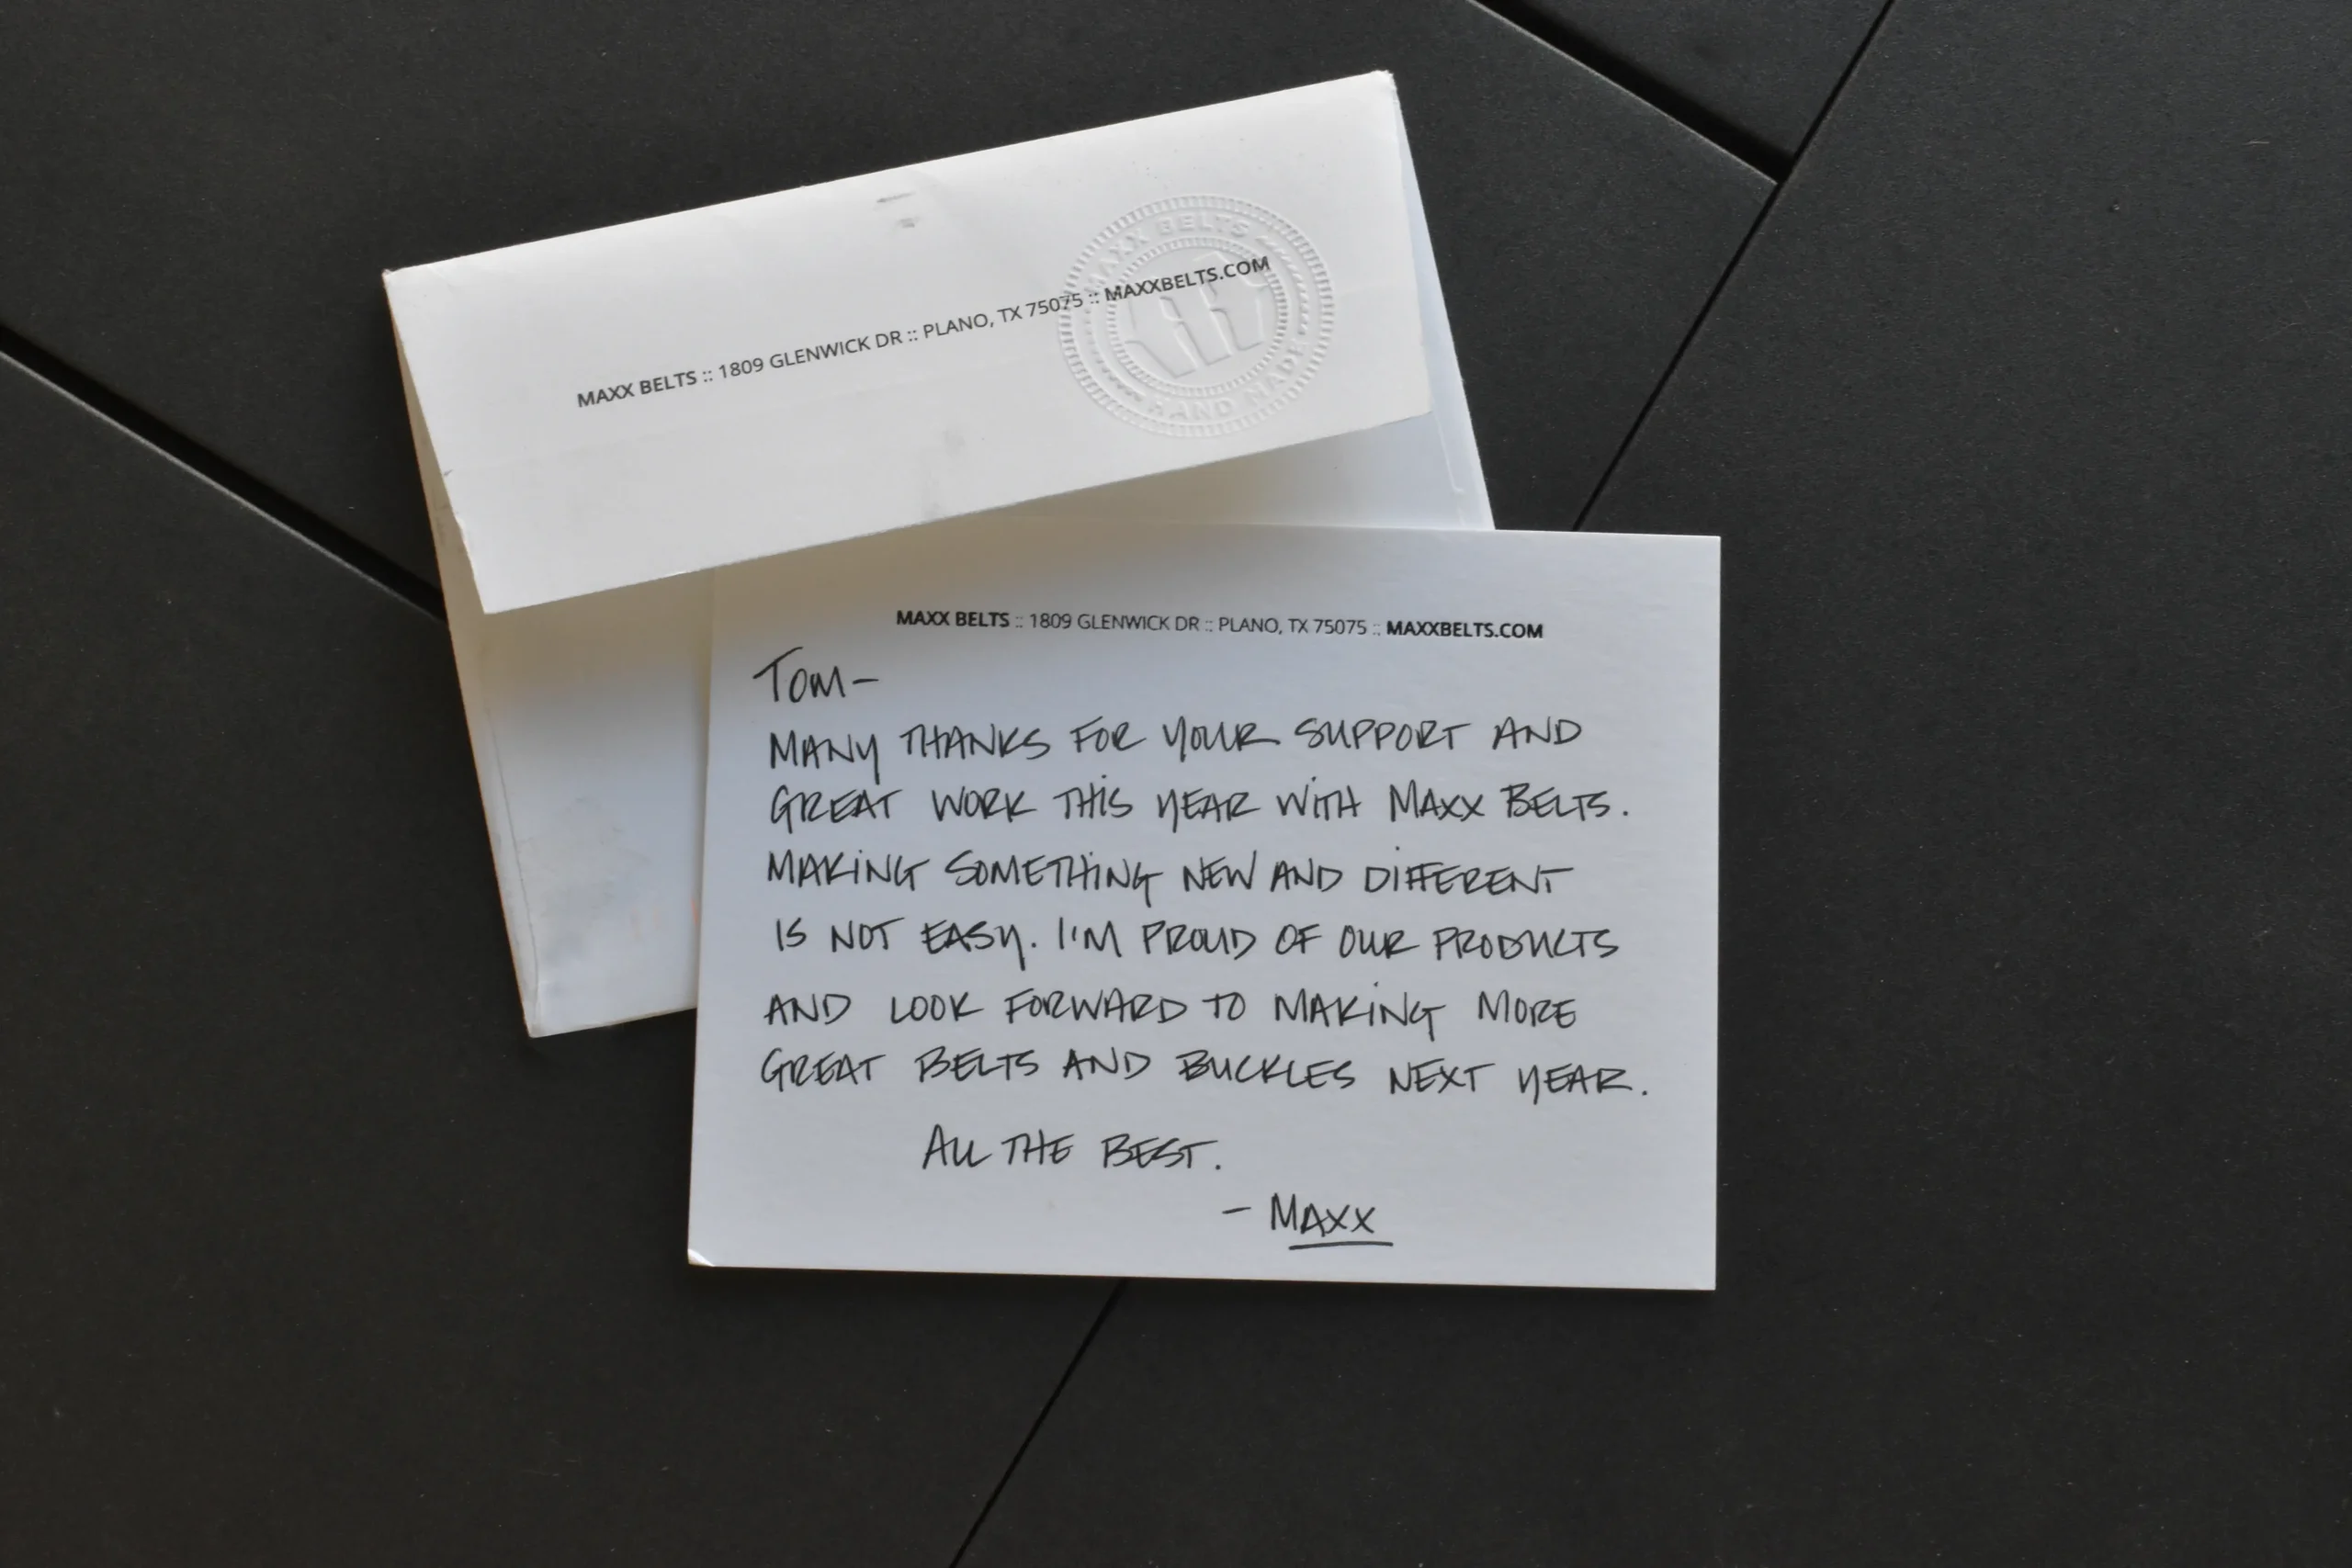 MAXX BELTS :: 1809 GLENWICK DR :: PLANO, TX 75075 :: MAXXBELTS.COM
MAXX BELTS
HAND MADE
MAXX BELTS :: 1809 GLENWICK DR :: PLANO, TX 75075 :: MAXXBELTS.COM
TOM-
MANY THANKS FOR YOUR SUPPORT AND
GREAT WORK THIS YEAR WITH MAXX BELTS.
MAKING SOMETHING NEW AND DIFFERENT
IS NOT EASY. I'M PROUD OF OUR PRODUCTS
AND LOOK FORWARD TO MAKING MORE
GREAT BELTS AND BUCKLES NEXT YEAR.
ALL THE BEST.
- MAXX